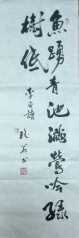 魚躍青池滿鶯吟綠
樹低
李白詩